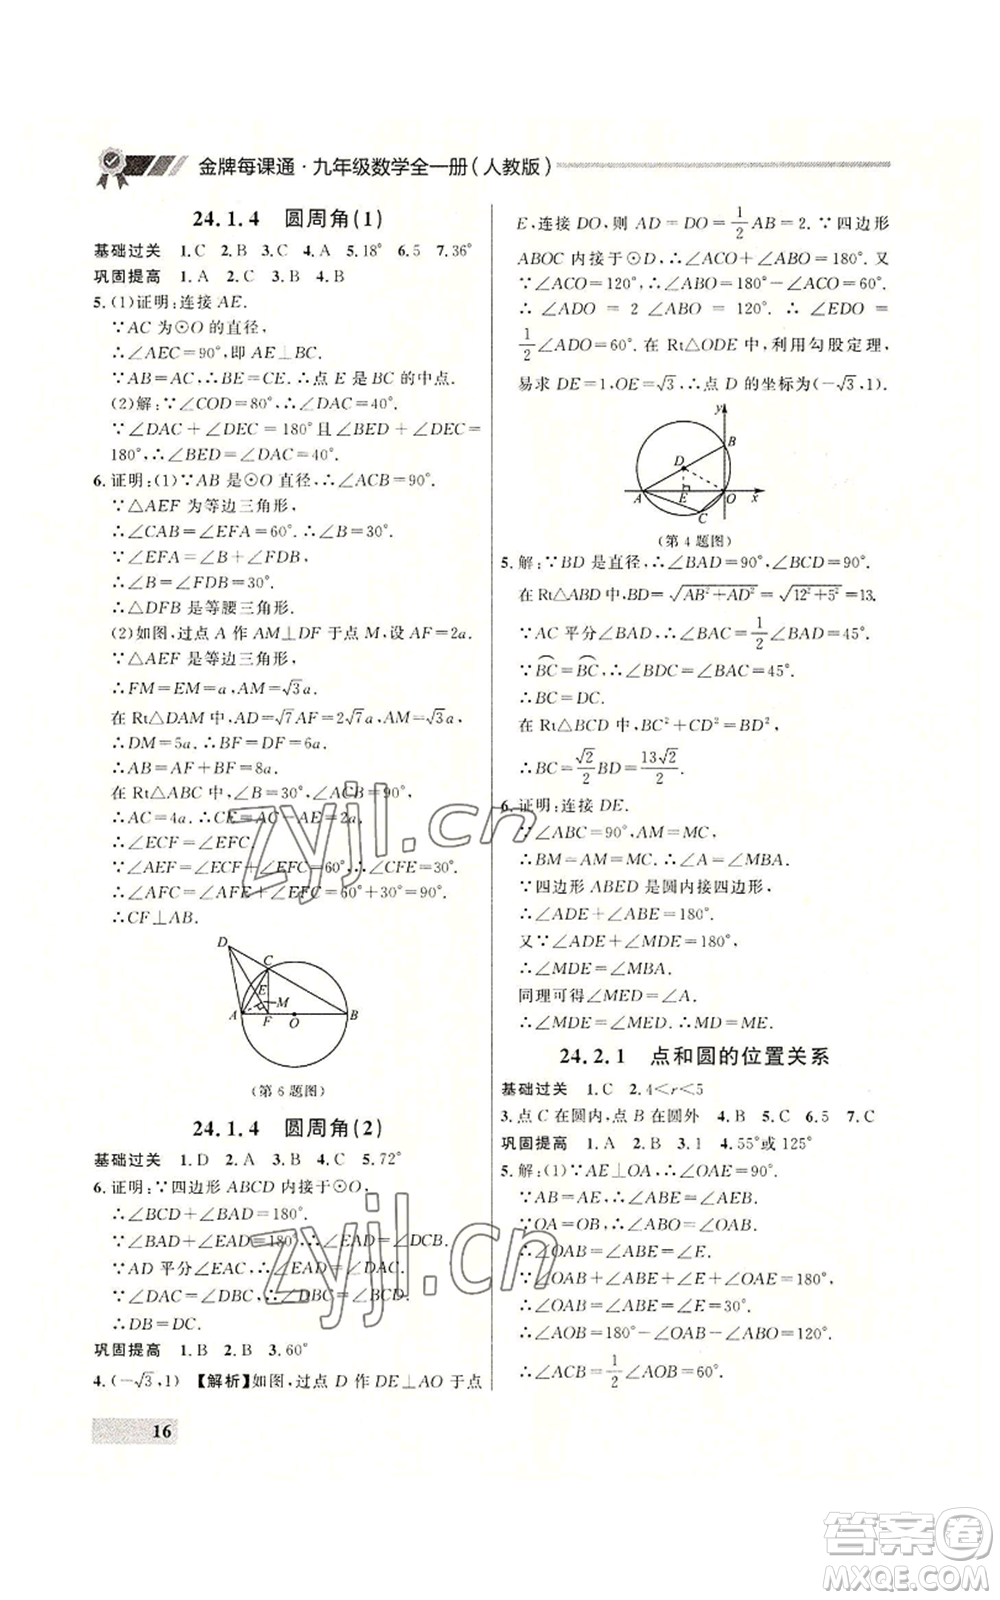 金牌每课通·九年级数学全一册(人教版)
24.1.4 圆周角(1)
基础过关 1.C 2.B 3.C 4.A 5.18° 6.5 7.36°
巩固提高 1.A 2.C 3.B 4.B
5.(1)证明:连接 AE.
∵AC 为⊙O 的直径,
∴∠AEC=90°,即 AE⊥BC.
∵AB=AC,∴BE=CE.∴点 E 是 BC 的中点.
(2)解:∵∠COD=80°,∴∠DAC=40°.
∵∠DAC+∠DEC=180°且∠BED+∠DEC=
180°,∴∠BED=∠DAC=40°.
6.证明:(1)∵AB 是⊙O 直径,∴∠ACB=90°.
∵△AEF 为等边三角形,
∴∠CAB=∠EFA=60°.∴∠B=30°.
∵∠EFA=∠B+∠FDB,
∴∠B=∠FDB=30°.
∴△DFB 是等腰三角形.
(2)如图,过点 A 作 AM⊥DF 于点 M,设 AF=2a.
∵△AEF 是等边三角形,
∴FM=EM=a,AM=√3a.
在 Rt△DAM 中,AD=√7AF=2√7a,AM=√3a,
∴DM=5a.∴BF=DF=6a.
∴AB=AF+BF=8a.
在 Rt△ABC 中,∠B=30°,∠ACB=90°,
∴AC=4a.∴CE=AC-AE=2a.
∴∠ECF=∠EFC.
∵∠AEF=∠ECF+∠EFC=60°,∴∠CFE=30°.
∴∠AFC=∠AFE+∠EFC=60°+30°=90°.
∴CF⊥AB.
D
C
E
M
A
F
O
B
(第 6 题图)
24.1.4 圆周角(2)
基础过关 1.D 2.A 3.C 4.C 5.72°
6.证明:∵四边形 ABCD 内接于⊙O,
∴∠BCD+∠BAD=180°.
∵∠BAD+∠EAD=180°,∴∠EAD=∠DCB.
∵AD 平分∠EAC,∴∠EAD=∠DAC.
∵∠DAC=∠DBC,∴∠DBC=∠DCB.
∴DB=DC.
巩固提高 1.B 2.B 3.60°
4.(-√3,1) 【解析】如图,过点 D 作 DE⊥AO 于点
16
E,连接 DO,则 AD=DO=1/2AB=2.∵四边形
ABOC 内接于⊙D,∴∠ACO+∠ABO=180°.又
∵∠ACO=120°,∴∠ABO=180°-∠ACO=60°.
∴∠ADO=2∠ABO=120°.∴∠EDO=
1/2∠ADO=60°.在 Rt△ODE 中,利用勾股定理,
易求 DE=1,OE=√3,∴点 D 的坐标为(-√3,1).
y
B
D
A
E
O
x
C
(第 4 题图)
5.解:∵BD 是直径,∴∠BAD=90°,∠BCD=90°.
在 Rt△ABD 中,BD=√(AB²+AD²)=√(12²+5²)=13.
∵AC 平分∠BAD,∴∠BAC=1/2∠BAD=45°.
∵⌒BC=⌒BC,∴∠BDC=∠BAC=45°.
∴BC=DC.
在 Rt△BCD 中,BC²+CD²=BD²,
∴BC=√2/2BD=13√2/2.
6.证明:连接 DE.
∵∠ABC=90°,AM=MC,
∴BM=AM=MC.∴∠A=∠MBA.
∵四边形 ABED 是圆内接四边形,
∴∠ADE+∠ABE=180°.
又∵∠ADE+∠MDE=180°,
∴∠MDE=∠MBA.
同理可得∠MED=∠A.
∴∠MDE=∠MED.∴MD=ME.
24.2.1 点和圆的位置关系
基础过关 1.C 2.4<r<5
3.点 C 在圆内,点 B 在圆外 4.B 5.C 6.5 7.C
巩固提高 1.A 2.B 3.1 4.55°或 125°
5.解:(1)∵AE⊥OA,∴∠OAE=90°.
∵AB=AE,∴∠ABE=∠AEB.
∵OA=OB,∴∠ABO=∠OAB.
∴∠OAB=∠ABE=∠E.
∵∠OAB+∠ABE+∠E+∠OAE=180°,
∴∠OAB=∠ABE=∠E=30°.
∴∠AOB=180°-∠OAB-∠ABO=120°.
∴∠ACB=1/2∠AOB=60°.
zyjl.cn
zyjl.cn
答案圈
MXQE.COM